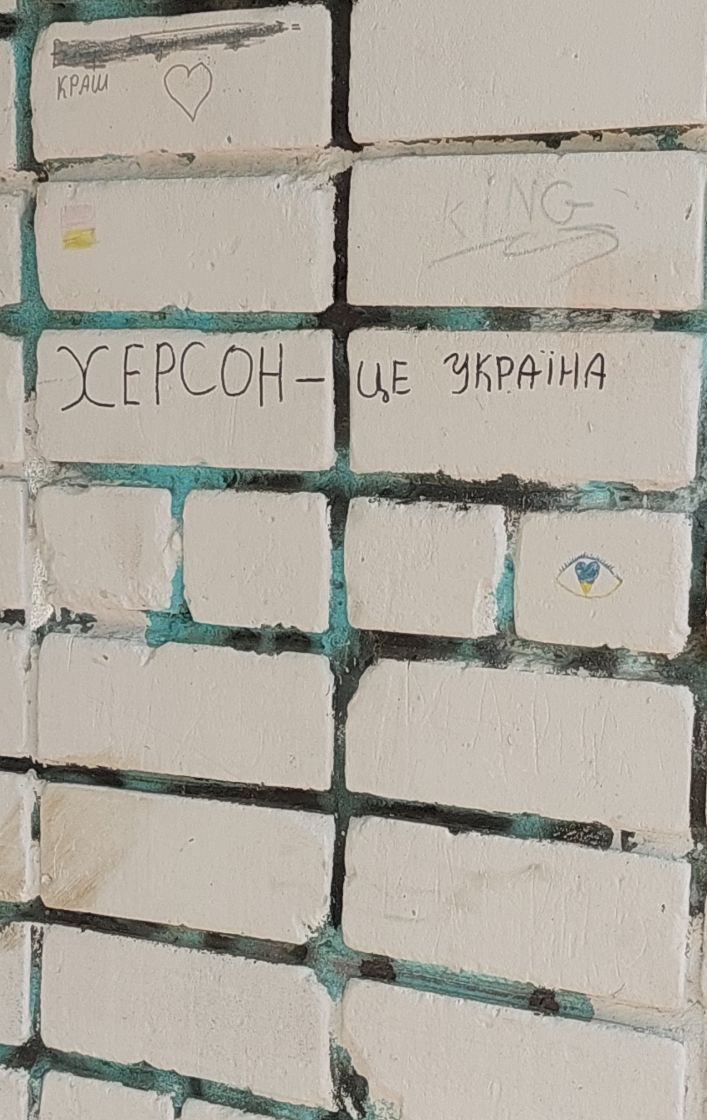 КРАШ
KING
ХЕРСОН – ЦЕ УКРАЇНА